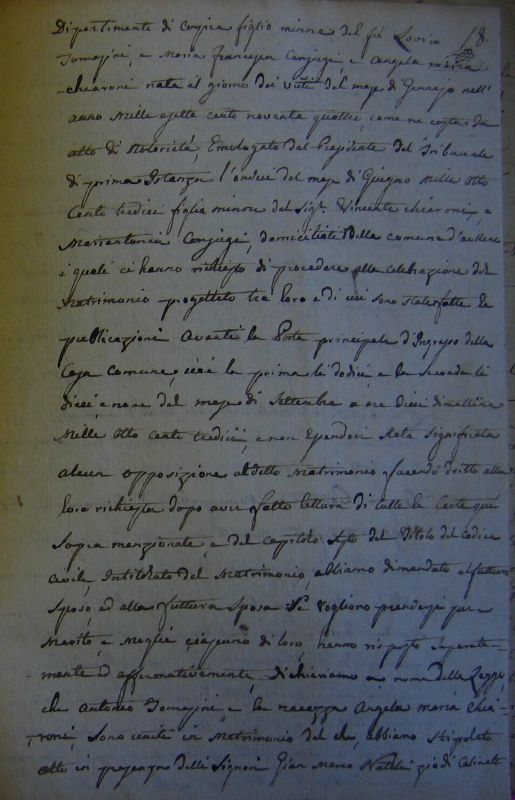 18.
Dipartimento di Corsica figlio minore del fú
Tomasini, e Maria Francesca Conjugi, e Angela Maria
chiaroni nata il giorno dei Venti del mese di Genajo nell'
anno Mille e sette cento novanta quattro, come ne costa da
atto di Notorietà, Emologato dal Presidente del Tribunale
di prima Istanza l'ondeci del mese di Giugno Mille otto
cento tredici figlia minore del Sigr. Vincente chiaroni, e
Mariantonia Conjugi, domiciliati della comune d'
i quali ci hanno richiesto di procedere alla celebrazione del
Matrimonio progettato tra loro e di cui sono state fatte le
publicazioni Avanti la Porta principale d'Ingresso della
Casa Comune, cioè la prima li dodici, e la Seconda li
dieci e nove del mese di Settembre a ore dieci di mattina
Mille otto cento tredici, e non Essendoci stata Significata
alcun opposizione al detto Matrimonio facendo dritto alla
loro richiesta dopo aver fatto lettura di tutte le Carte qui
Sopra menzionate, e del capitolo Sesto del Titolo del Codice
Civile, Intitolato del Matrimonio, abbiamo dimandato al futuro
Sposo, ed alla futura Sposa Se Vogliono prendersi per
Marito, e Moglie, ciascuno di loro, hanno risposto Separata-
mente ed affermativamente, dichiariamo a nome della Legge,
che Antonio Tomasini e la ragazza Angela Maria Chia-
roni, Sono uniti in Matrimonio del che, abbiamo Stipolato
atto in presenza delli Signori Gian Marco Natali zio di